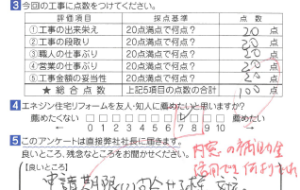 3 今回の工事に点数をつけてください。
評価項目 採点基準 点数
①工事の出来栄え 20点満点で何点? 20 点
②工事の段取り 20点満点で何点? 20 点
③職人の仕事ぶり 20点満点で何点? 20 点
④営業の仕事ぶり 20点満点で何点? 20 点
⑤工事金額の妥当性 20点満点で何点? 20 点
★総合点数 上記5項目の点数の合計 100 点
4 エネジン住宅リフォームを友人・知人に薦めたいと思いますか?
薦めたくない 薦めたい
0 1 2 3 4 5 6 7 8 9 10
5 このアンケートは直接弊社社長に届きます。
良いところ、残念なところをお聞かせください。
【良いところ】
内窓の補助金
申請期限